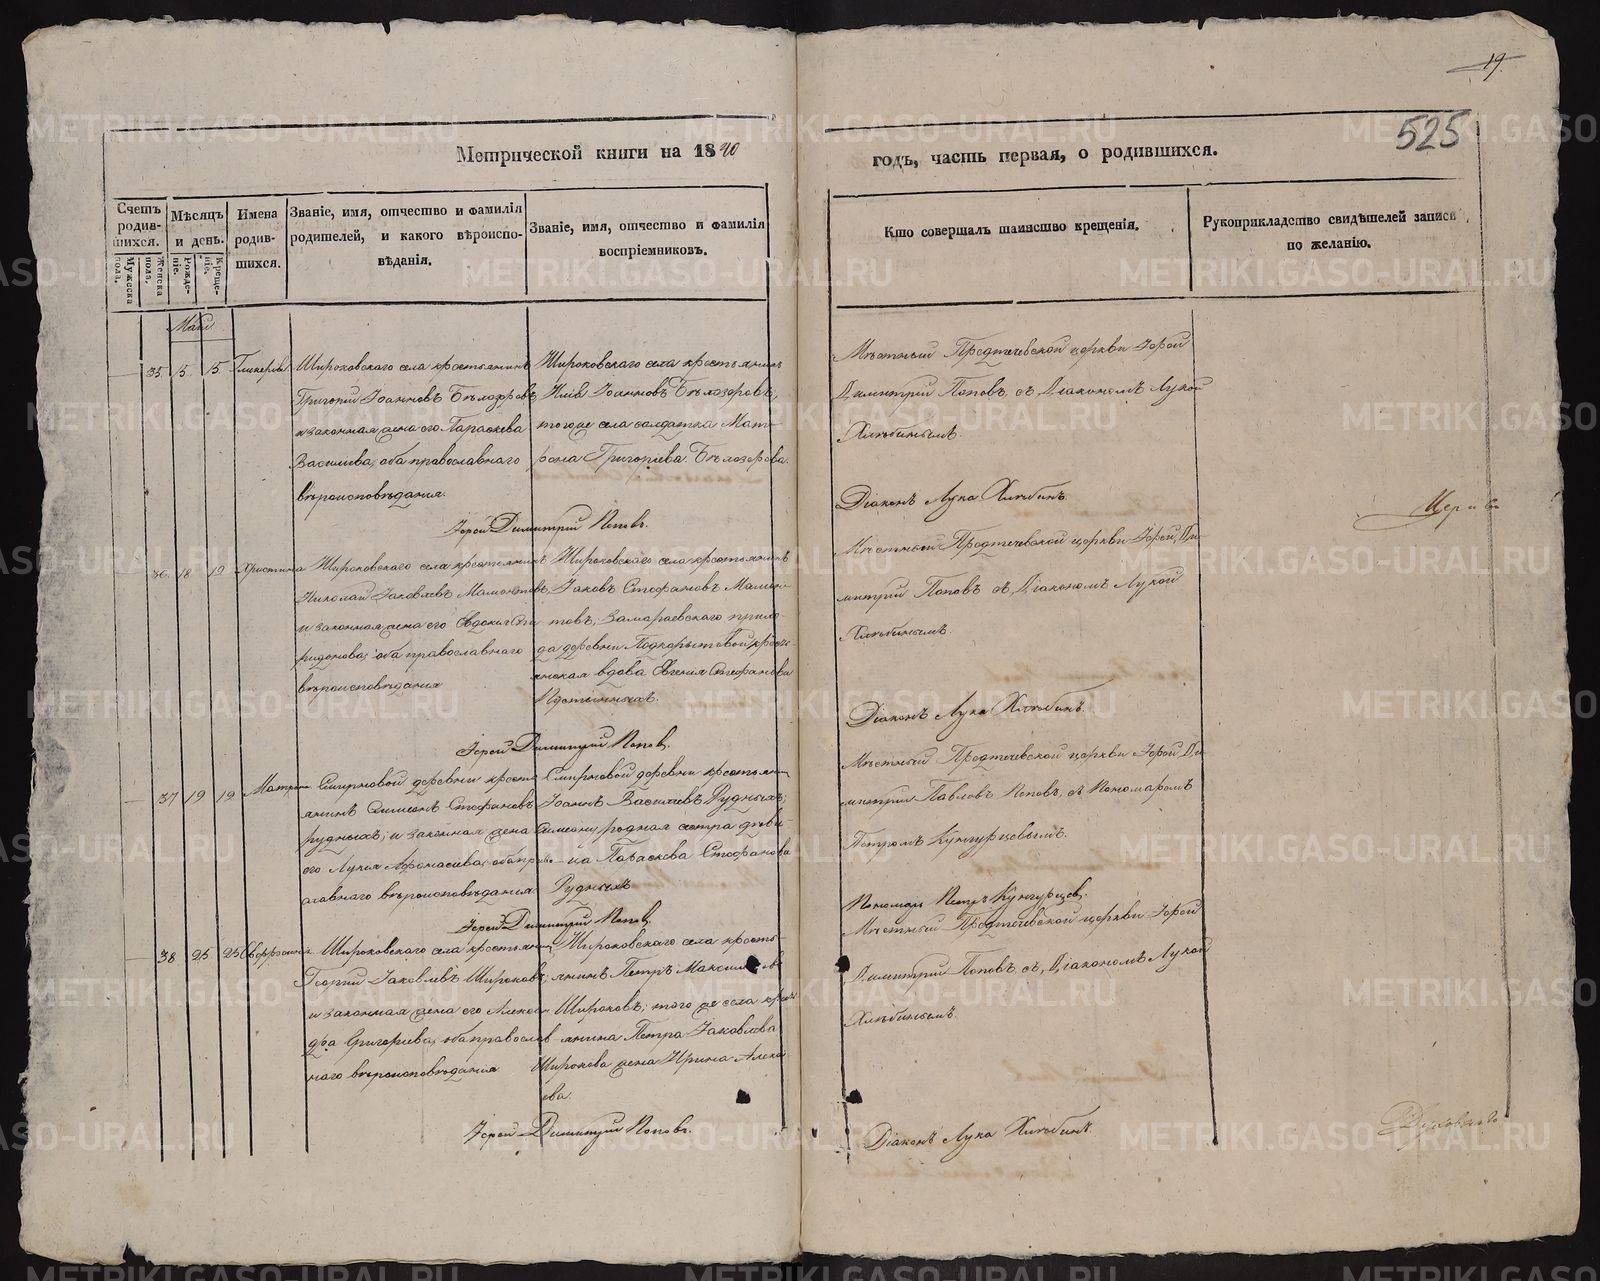 19.
525
Метрической книги на 1840
годъ, часть первая, о родившихся.
Счетъ родив-шихся.
Мужеска пола.
Женска пола.
Мѣсяцъ и день.
Рожде-нiе.
Креще-нiе.
Имена родив-шихся.
Званiе, имя, отчество и фамилiя
родителей, и какого вѣроиспо-
вѣданiя.
Званiе, имя, отчество и фамилiя
воспрiемниковъ.
Кто совершалъ таинство крещенiя.
Рукоприкладство свидѣтелей записи
по желанiю.
Маiй
35. 15. 15. Гликерiя
Широковскаго села крестьянинъ
Григорiй Iоанновъ Бѣлозоровъ
и законная жена его Параскева
Василiева, оба православнаго
вѣроисповѣданiя.
Широковскаго села крестьянинъ
Илiя Iоанновъ Бѣлозоровъ,
тогоже села солдатка Мат-
рона Григорiева Бѣлозорова.
Iерей Димитрiй Поповъ.
Мѣстный Предтечевской церкви Iерей
Димитрiй Поповъ съ Дiакономъ Лукой
Хлѣбинымъ.
Дiаконъ Лука Хлѣбинъ.
36. 18. 19 Христина
Широковскаго села крестьянинъ
Николай Iаковлевъ Мамонтовъ,
и законная жена его Евдокiя Спи-
ридонова, оба православнаго
вѣроисповѣданiя
Широковскаго села крестьянинъ
Iаковъ Стефановъ Мамон-
товъ, Замараевскаго прихо-
да деревни Подкорытовой крестья-
янская вдова Евгенiя Стефанова
Iерей Димитрiй Поповъ.
Мѣстный Предтечевской церкви Iерей Ди-
митрiй Поповъ съ Дiакономъ Лукой
Хлѣбинымъ.
Дiаконъ Лука Хлѣбинъ.
37 19 19 Матрона
Смирновой деревни кресть-
янинъ Симеонъ Стефановъ
Рудныхъ, и законная жена
его Лукiя Афонасiева, оба прав-
славнаго вѣроисповѣданiя.
Смирновой деревни крестьянинъ
Iоаннъ Василiевъ Рудныхъ,
Симеону родная сестра дѣви-
ца Параскева Стефанова
Рудныхъ
Iерей Димитрiй Поповъ.
Мѣстный Предтечевской церкви Iерей Ди-
митрiй Павловъ Поповъ, съ Пономаремъ
Петромъ Кунгурцовымъ.
Пономарь Петръ Кунгурцевъ.
38 25 25
Широковскаго села крестьянинъ
Георгiй Iаковлевъ Широковъ,
и законная жена его Алексан-
дра Григорiева, оба православ-
наго вѣроисповѣданiя
Широковскаго села кресть-
янинъ Петръ Максимовъ
Широковъ, того же села кресть-
янина Петра Iаковлева
Широкова жена Ирина Алексѣ-
ева.
Iерей Димитрiй Поповъ.
Мѣстный Предтечевской церкви Iерей
Димитрiй Поповъ съ Дiакономъ Лукой
Хлѣбинымъ.
Дiаконъ Лука Хлѣбинъ.
METRIKI.GASO-URAL.RU